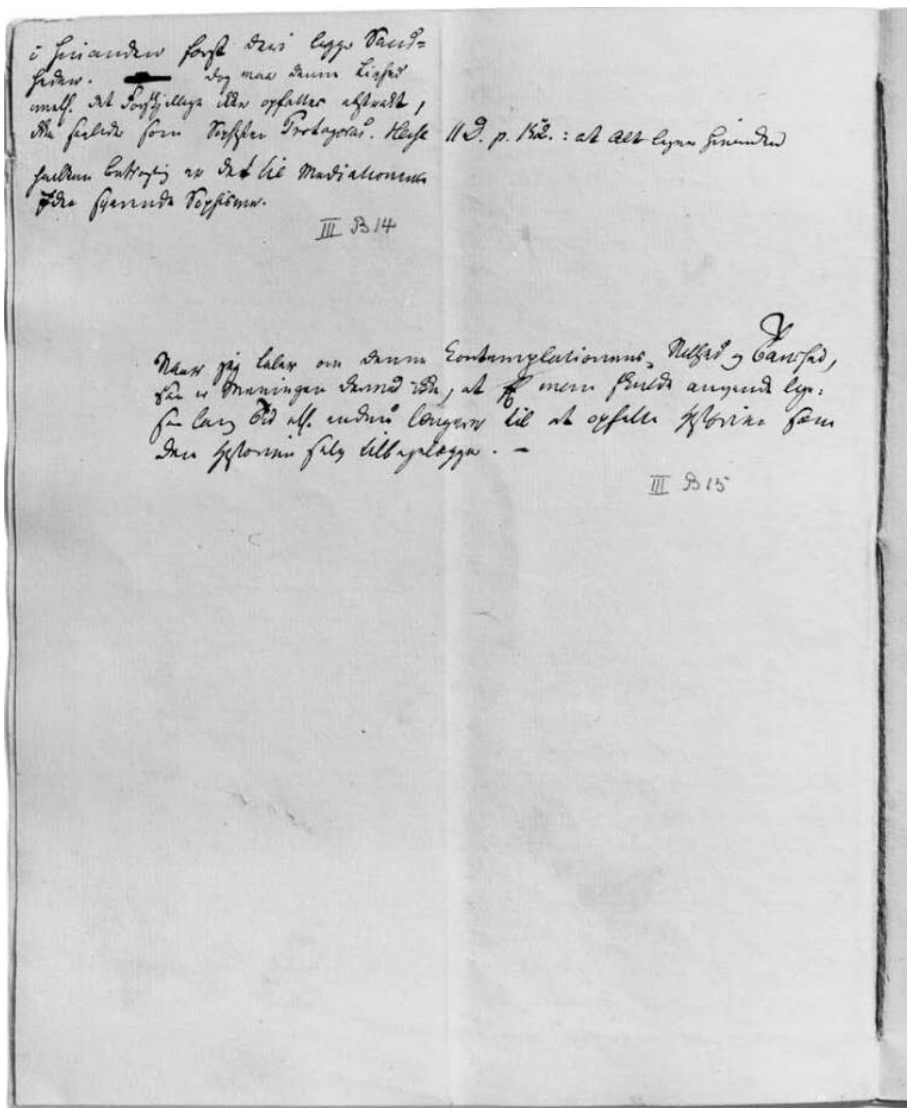 i hinanden først deri ligger Sand-
heden. Dog maa denne Liighed
mell. det Forskjellige ikke opfattes abstrakt,
ikke saaledes som Sophisten Protagoras. Heise II D. p. 152.: at Alt ligner hinanden
hvilken Betragtning er det til Mediationens
Idee svarende Sophisme.
III B 14
Naar jeg taler om denne Contemplationens Stilhed og Tavshed,
saa er Meningen dermed ikke, at man skulde anvende lige-
saa lang Tid ell. endnu længere til at opfatte Historien som
den Historien selv tilbagelægger. –
III B 15